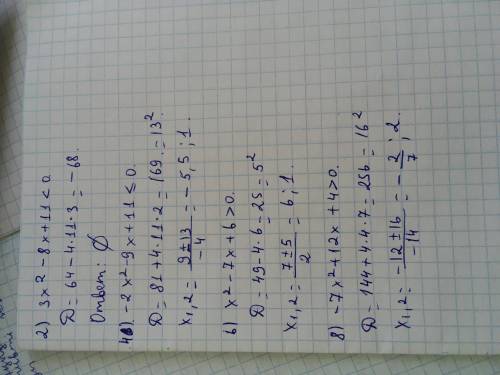 2) 3x² - 8x + 11 < 0.
D = 64 - 4·11·3 = -68.
Ответ: ∅
4) -2x² - 9x + 11 ≤ 0.
D = 81 + 4·11·2 = 169 = 13²
x₁,₂ = (9 ± 13)/(-4) = -5,5; 1.
6) x² - 7x + 6 > 0.
D = 49 - 4·6 = 25 = 5²
x₁,₂ = (7 ± 5)/2 = 6; 1.
8) -7x² + 12x + 4 > 0.
D = 144 + 4·4·7 = 256 = 16²
x₁,₂ = (-12 ± 16)/(-14) = -2/7; 2.